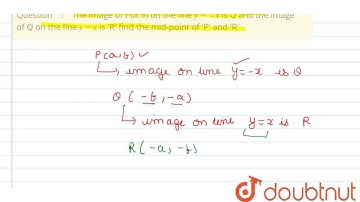 Question : The image of P(a, b) on the line y = -x is Q and the image
of Q on the line y = x is 'R' find the mid-point of 'P' and 'R'.
P(a,b) ✓
↳ image on line y=-x is Q
Q(-b,-a)
↳ image on line y=x is R
R(-a,-b)
doubtnut